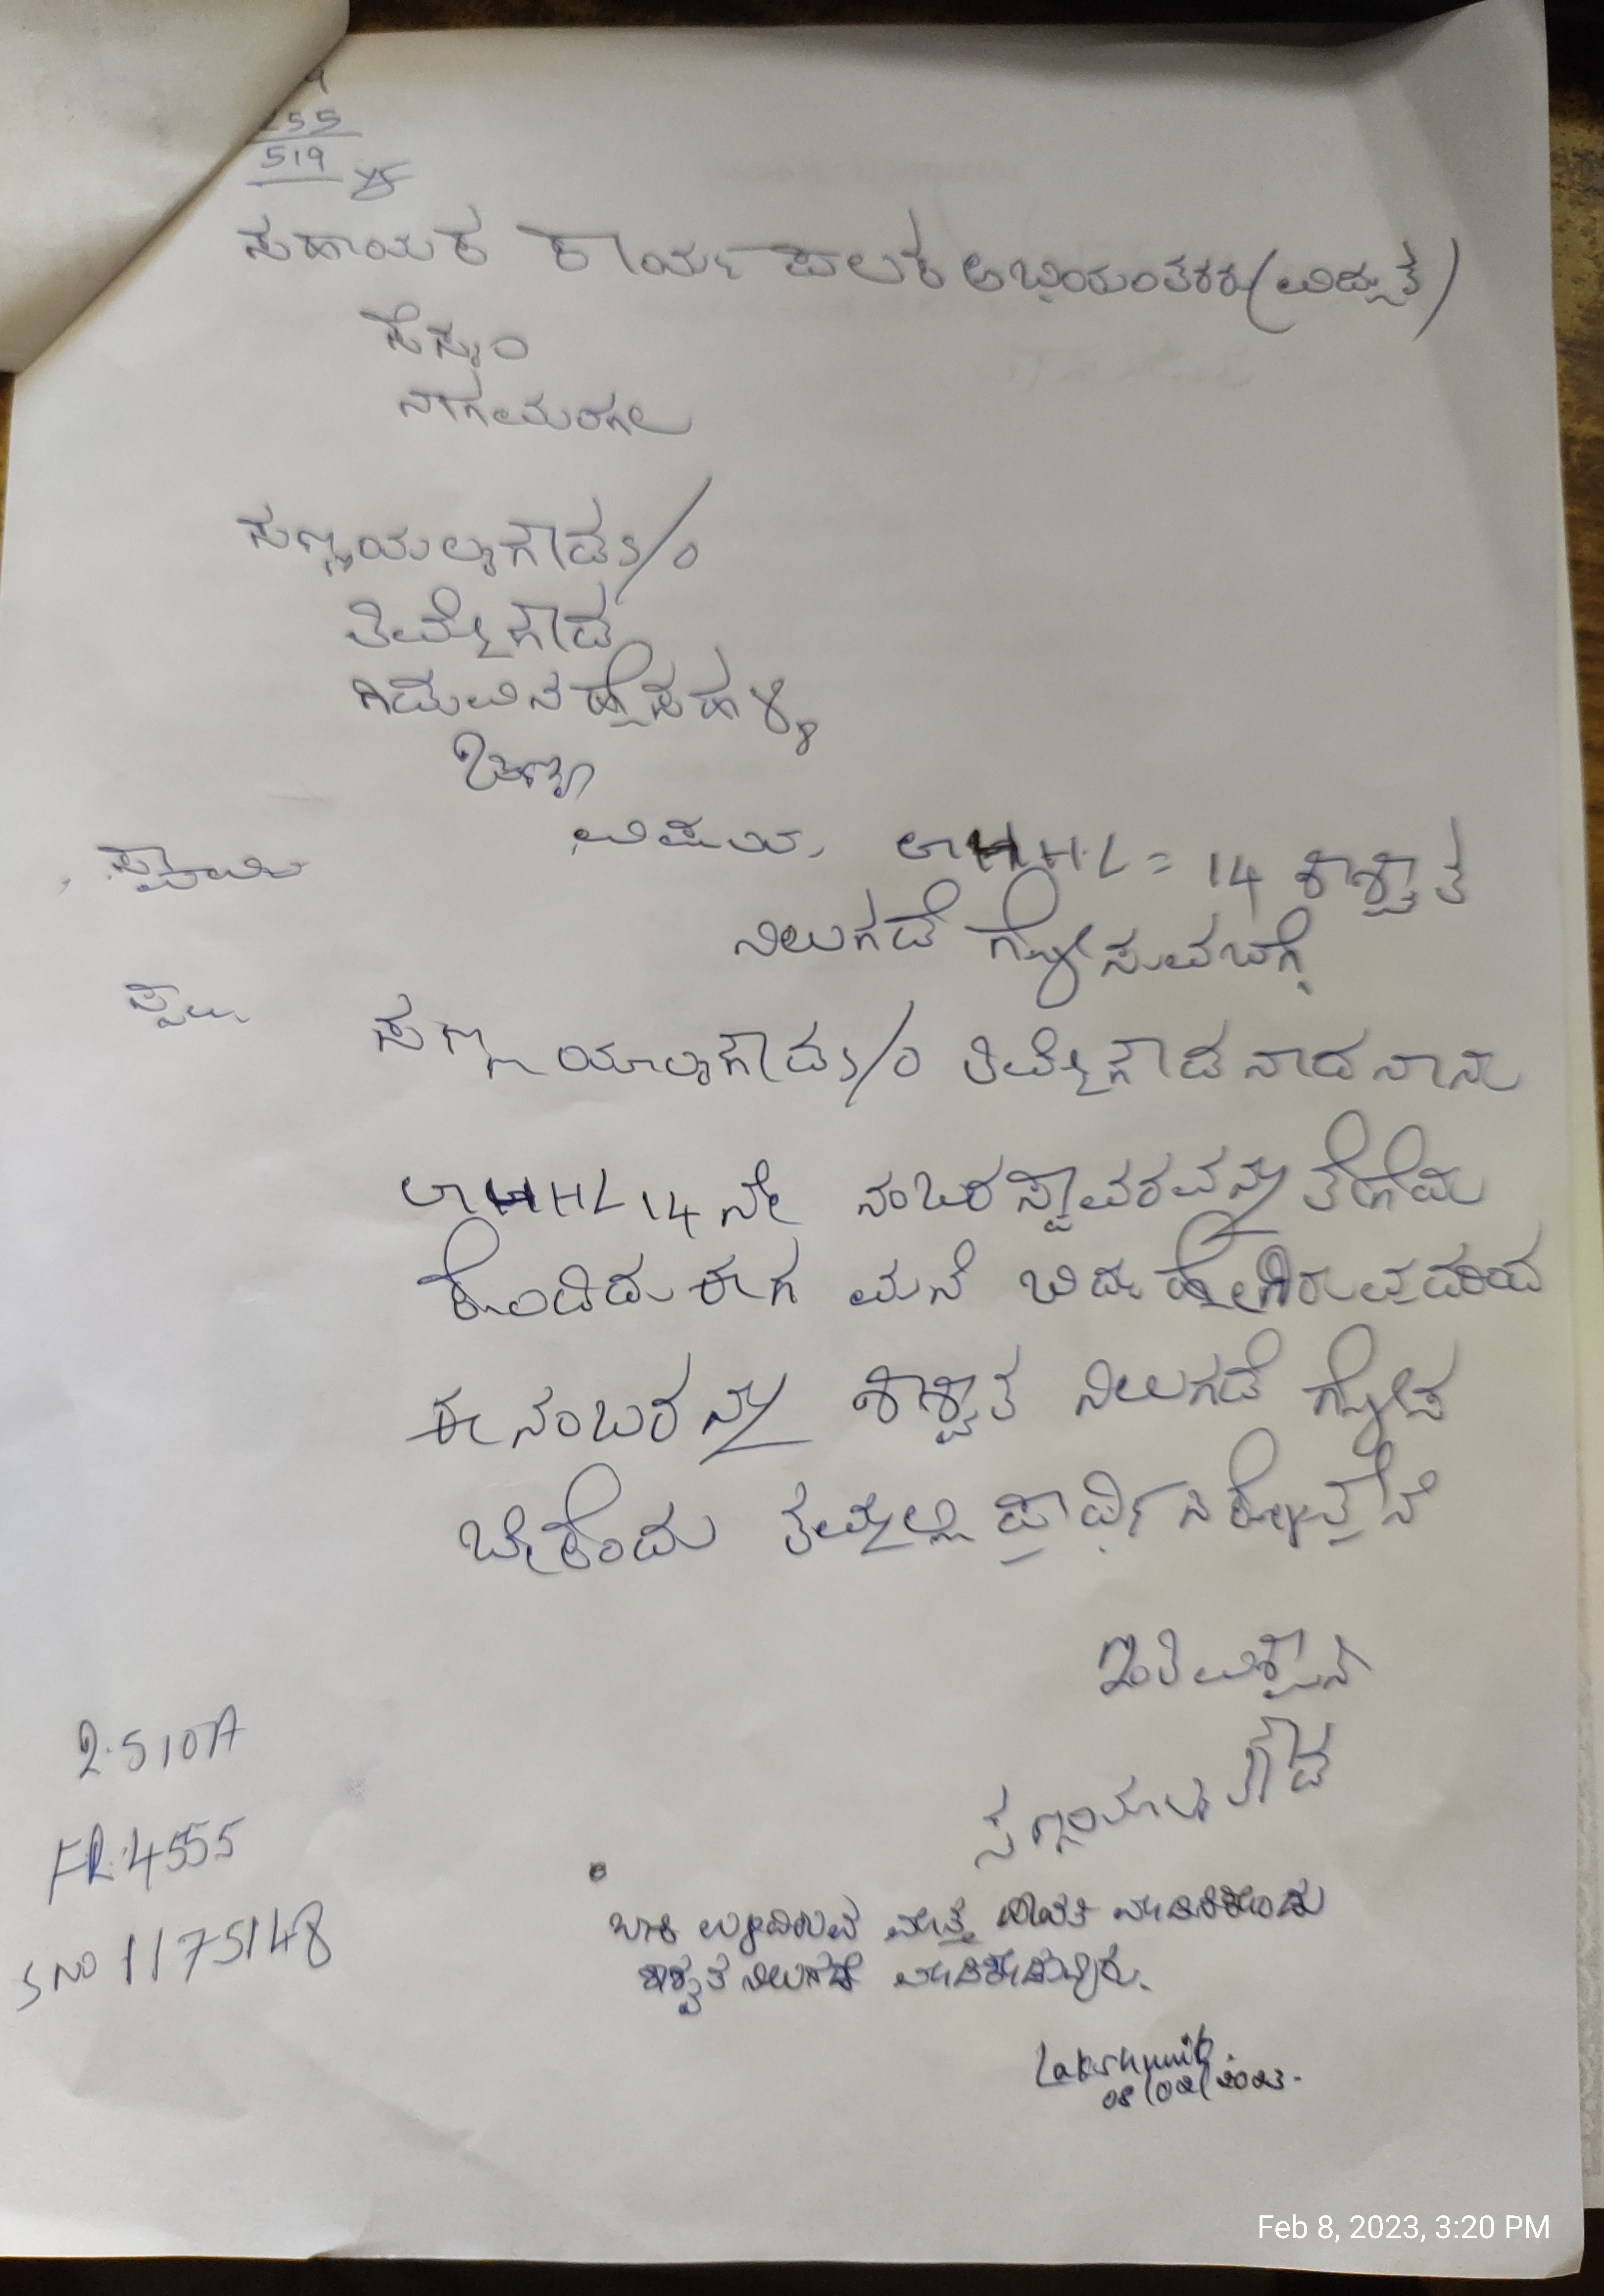 255
519
ಸಹಾಯಕ ಕಾರ್ಯಪಾಲಕ ಅಭಿಯಂತರರು (ವಿದ್ಯುತ್)
ಸೆಸ್ಕಾಂ
ನಾಗಮಂಗಲ
ಸಣ್ಣಯಲ್ಲಾಗೌಡ S/O
ತಿಮ್ಮೇಗೌಡ
ಗಿಡುವಿನ ಹೊಸಹಳ್ಳಿ
ವಿಷಯ. HHL = 14 ಶಾಶ್ವತ
ಸ್ವಾಮಿ
ನಿಲುಗಡೆ ಗೊಳಿಸುವ ಬಗ್ಗೆ
ಸಣ್ಣಯಲ್ಲಾಗೌಡ S/O ತಿಮ್ಮೇಗೌಡನಾದ ನಾನು
HHL 14 ನೇ ನಂಬರ ಸ್ಥಾವರವನ್ನು ತೆಗೆದು
ಕೊಂಡಿದು ಈಗ ಮನೆ ಬಿದ್ದು ಹೋಗಿರುವುದರಿಂದ
ಈ ನಂಬರನ್ನು ಶಾಶ್ವತ ನಿಲುಗಡೆ ಗೊಳಿಸ
ಬೇಕೆಂದು ತಮ್ಮಲ್ಲಿ ಪ್ರಾರ್ಥಿಸಿಕೊಳ್ಳುತ್ತೇನೆ
ಇಂತಿ ವಿಶ್ವಾಸಿ
ಸಣ್ಣಯಲ್ಲಾಗೌಡ
2.510A
FR. 4555
S NO 1175148
ಬಾಕಿ ಉಳಿದಿರುವ ಮೊತ್ತ ಪಾವತಿ ಮಾಡಿಸಿಕೊಂಡು
ಶಾಶ್ವತ ನಿಲುಗಡೆ
08/02/2023.
Feb 8, 2023, 3:20 PM